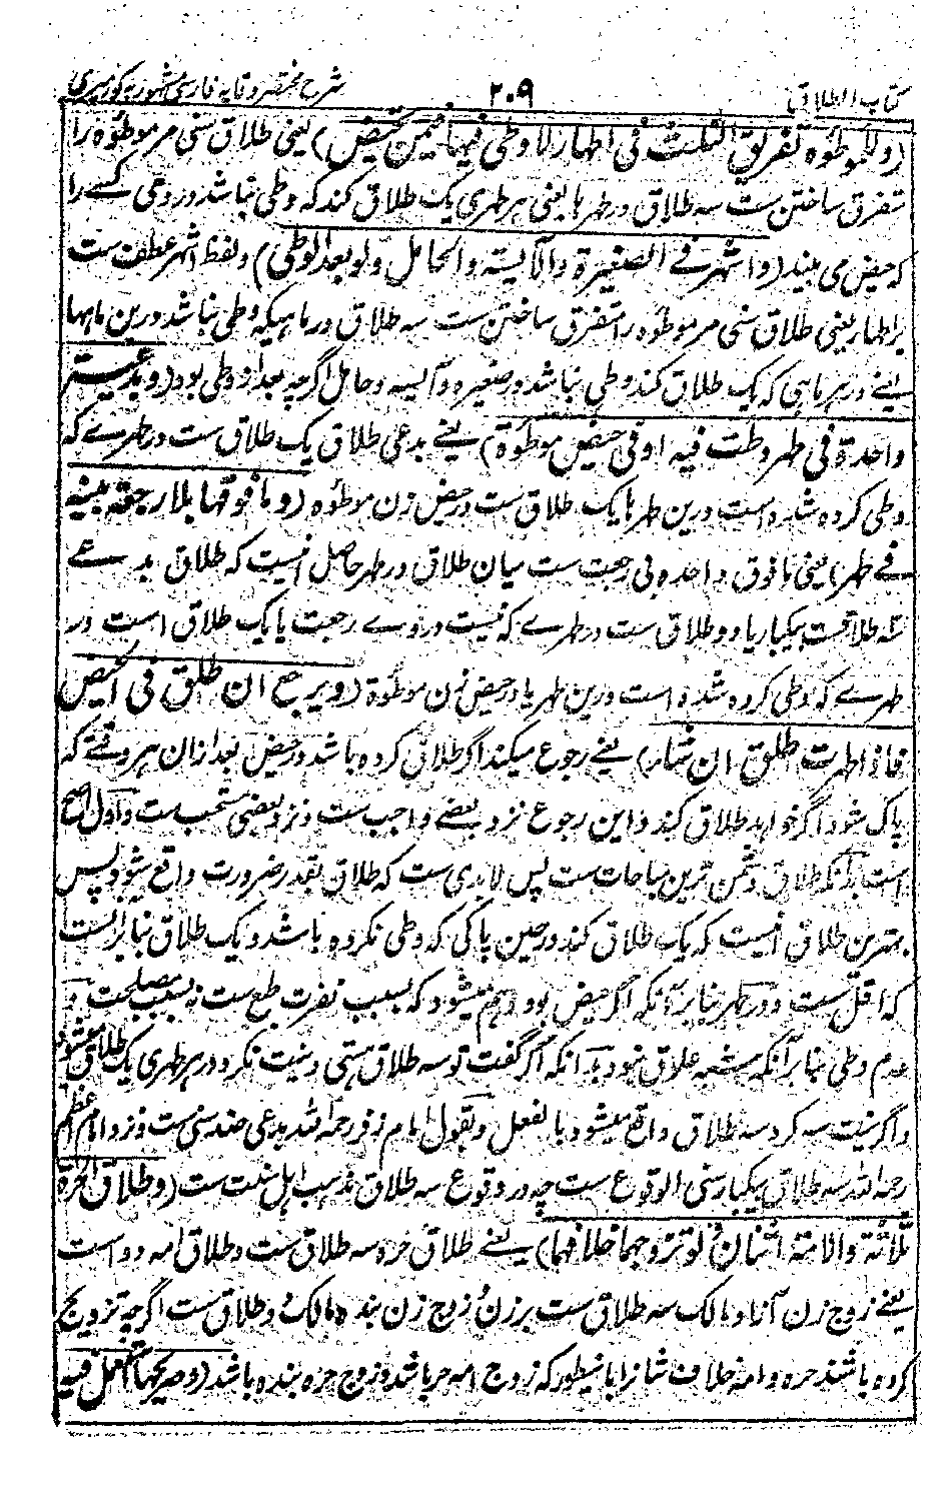 کتاب الطلاق ۲۰۹ شرح مختصر وقایه فارسی مشهور به کورمیری
(وللموطوٴه تفریق الثلث فی اطهار لا وطی فیها فیمن تحیض) یعنی طلاق سنی مر موطوٴه را
متفرق ساختن ست سه طلاق در طهرها یعنی هر طهری یک طلاق کند که وطی نباشد در وی کسے را
که حیض می بیند (واشهر فے الصغیرة والآیسة والحامل ولو بعد الوطی) ولفظ اشهر عطف ست
بر اطهار یعنی طلاق سنی مر موطوٴه را متفرق ساختن ست سه طلاق در ماهیکه وطی نباشد درین ماهها
یعنے در هر ماهی که یک طلاق کند وطی نباشد در صغیره و آیسه و حامل اگرچه بعد از وطی بود (وبدعیته
واحدة فی طهر وطئت فیه او فی حیض موطوٴة) یعنے بدعی طلاق یک طلاق ست در طهرے که
وطی کرده شده است درین طهر یا یک طلاق ست در حیض زن موطوٴه (وما فوقها بلا رجعة بینه
فے طهر) یعنی ما فوق واحده بی رجعت ست میان طلاق در طهر حاصل اینست که طلاق بدعے
سه طلاقست بیکبار یا دو طلاق ست در طهرے که نیست در وے رجعت یا یک طلاق است در
طهرے که وطی کرده شده است درین طهر یا در حیض زن موطوٴة (ویرجع ان طلق فی الحیض
فاذا طهرت طلق ان شاء) یعنے رجوع میکند اگر طلاق کرده باشد در حیض بعد ازان هر وقتے که
پاک شود اگر خواهد طلاق کند و این رجوع نزد بعضے واجب ست و نزد بعضی مستحب ست و اول اصح
است بدانکه طلاق دشمن ترین مباحات ست پس لابدی ست که طلاق بقدر ضرورت واقع شود پس
بهترین طلاق اینست که یک طلاق کند در حین پاکی که وطی نکرده باشد و یک طلاق بنابر آنست
که اقل ست و در طهر بنابر آنکه اگر حیض بود وهم میشود که بسبب نفرت طبع ست نه بسبب مصلحت و
عدم وطی بنابر آنکه شبه علاق نبود بدانکه اگر گفت تو سه طلاق هستی و نیت نکرد در هر طهری یک طلاق میشود
واگر نیت سه کرد سه طلاق واقع میشود بالفعل و بقول امام زفر رحمه الله بدعی ضد سنی ست و نزد امام اعظم
رحمه الله سه طلاق بیکبار سنی الوقوع ست چه در وقوع سه طلاق مذهب اهل سنت ست (وطلاق الحرة
ثلاثة والامة اثنان ولو تزوجهما خلافهما) یعنے طلاق حره سه طلاق ست و طلاق امه دو است
یعنے زوج زن آزاد مالک سه طلاق ست بر زن و زوج زن بنده مالک دو طلاق ست اگرچه تزویج
کرده باشند حره و امه خلاف شان را باینطور که زوج امه حر باشد و زوج حره بنده باشد (وصریحها تستعمل فیه